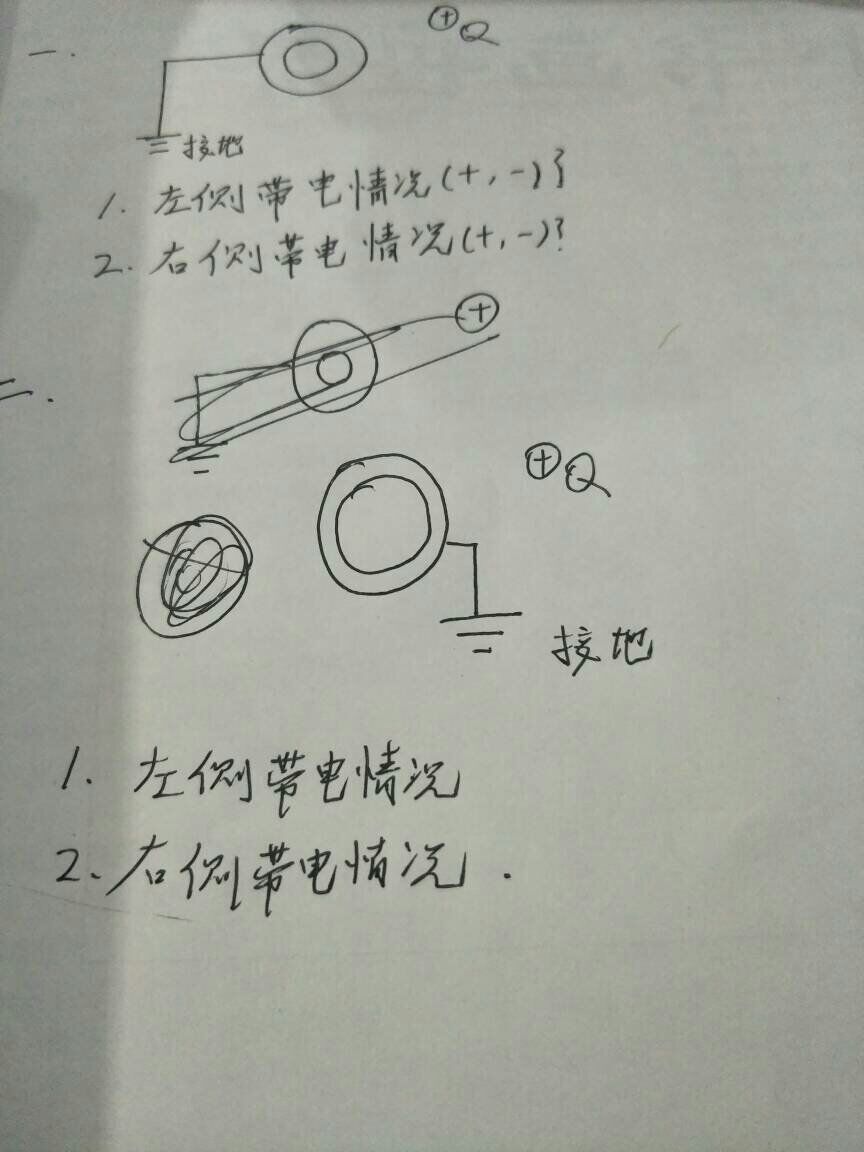 一. ⊕Q
接地
1. 左侧带电情况(+,-)?
2. 右侧带电情况(+,-)?
二. ⊕
⊕Q
接地
1. 左侧带电情况
2. 右侧带电情况.